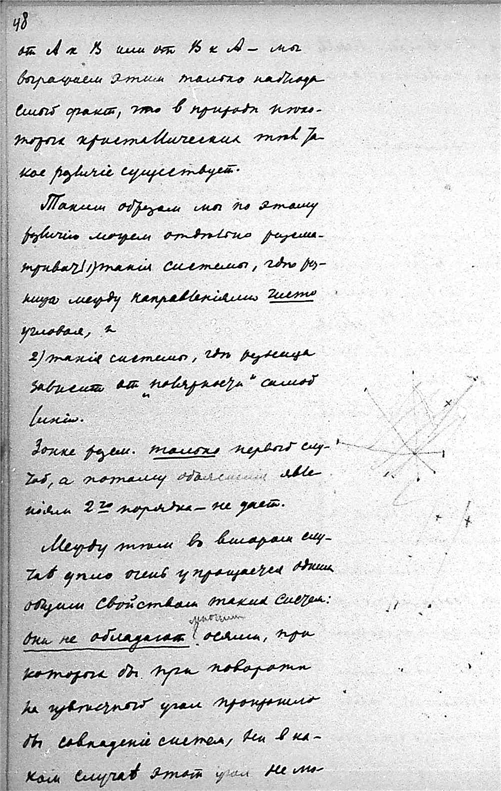 48
от А к В или от В к А — мы
выражаем этим только
факт, что в природе неко-
торых кристаллических тел та-
кое различие существует.
Таким образом мы по этому
различию можем отдельно рассма-
тривать 1) такія системы, где раз-
ница между направленіями чисто
угловая, и
2) такія системы, где разница
зависит от "полярности" самой
линіи.
Зонке разсм. только первый слу-
чай, а потому объясненія явле-
ніям 2го порядка — не дает.
Между тем во втором слу-
чае дело очень упрощается одним
общим свойством таких систем:
многими
они не обладают осями, при
которых бы при повороте
на угол произошло
бы совпадение систем, ни в ка-
ком случае этот угол не мо-